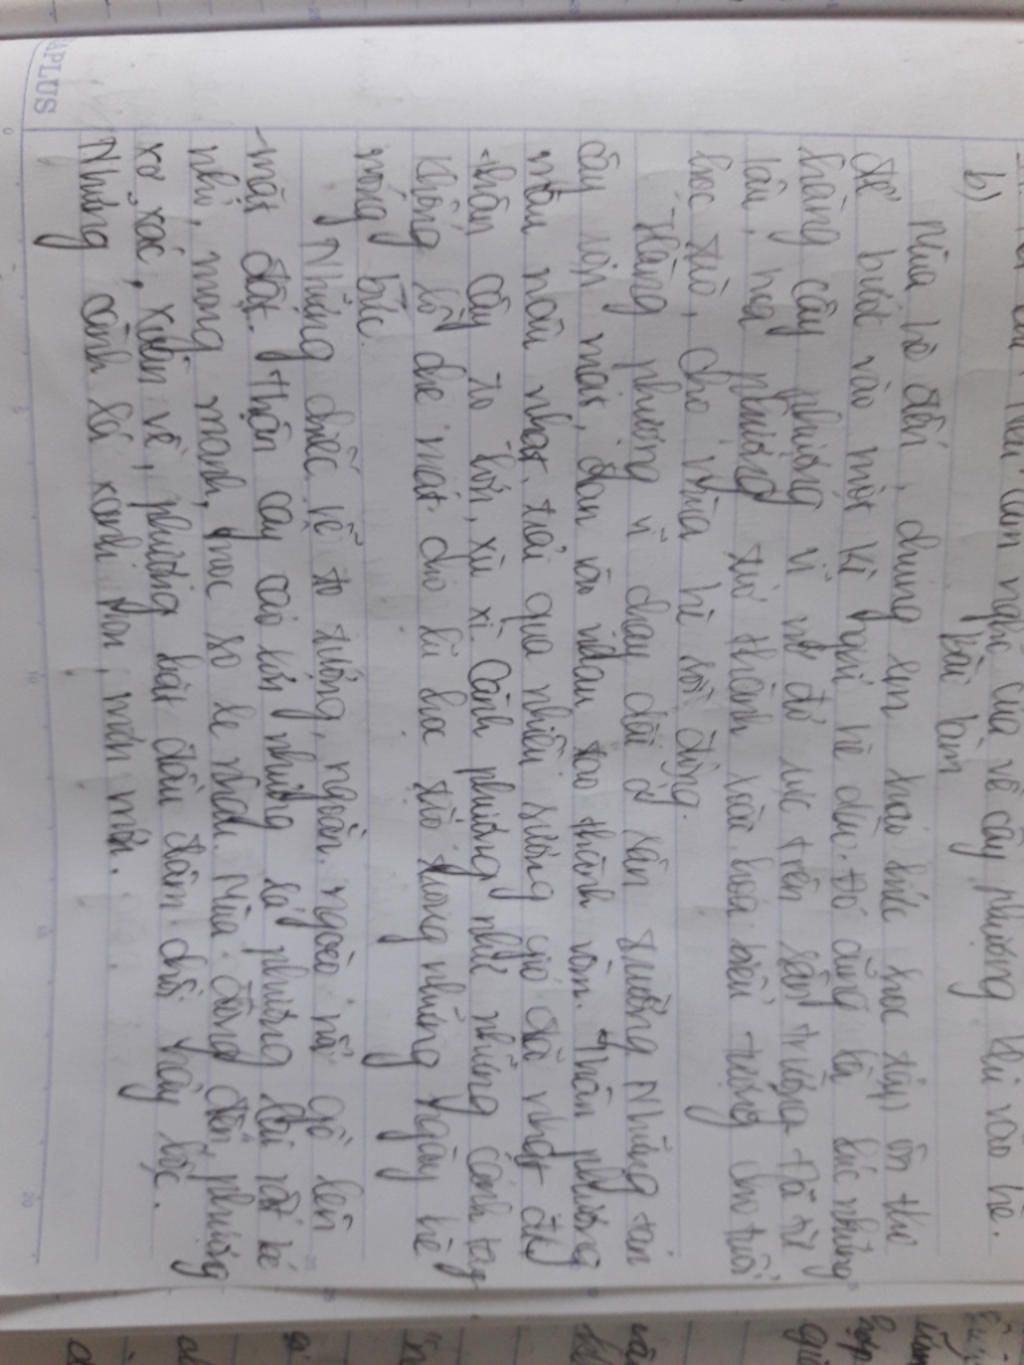 APLUS
nêu cảm nghĩ của về cây phượng khi vào hè.
b) Bài làm
Mùa hè đến, chúng em háo hức học tập ôn thi
để bước vào một kì nghỉ hè dài. Đó cũng là lúc những
hàng cây phượng vĩ nở đỏ rực trên sân trường. Đã từ
lâu, hoa phượng trở thành loài hoa biểu tượng cho tuổi
học trò, cho mùa hè sôi động.
Hàng phượng vĩ chạy dài ở sân trường. Những tán
cây rậm mát, đan vào nhau tạo thành vòm. Thân phượng
màu nâu nhạt, trải qua nhiều sương gió
thân cây to lớn, xù xì. Cành phượng như những cánh tay
khổng lồ che mát cho lũ học trò trong những ngày hè
nóng bức.
Những chiếc rễ to tướng, ngoằn ngoèo nổi gồ lên
mặt đất. Thân cây cao lớn nhưng lá phượng lại rất bé
nhỏ, mong manh, mọc so le nhau. Mùa đông đến, phượng
xơ xác, xuân về, phượng bắt đầu đâm chồi nảy lộc.
Những cành lá xanh non, mơn mởn.